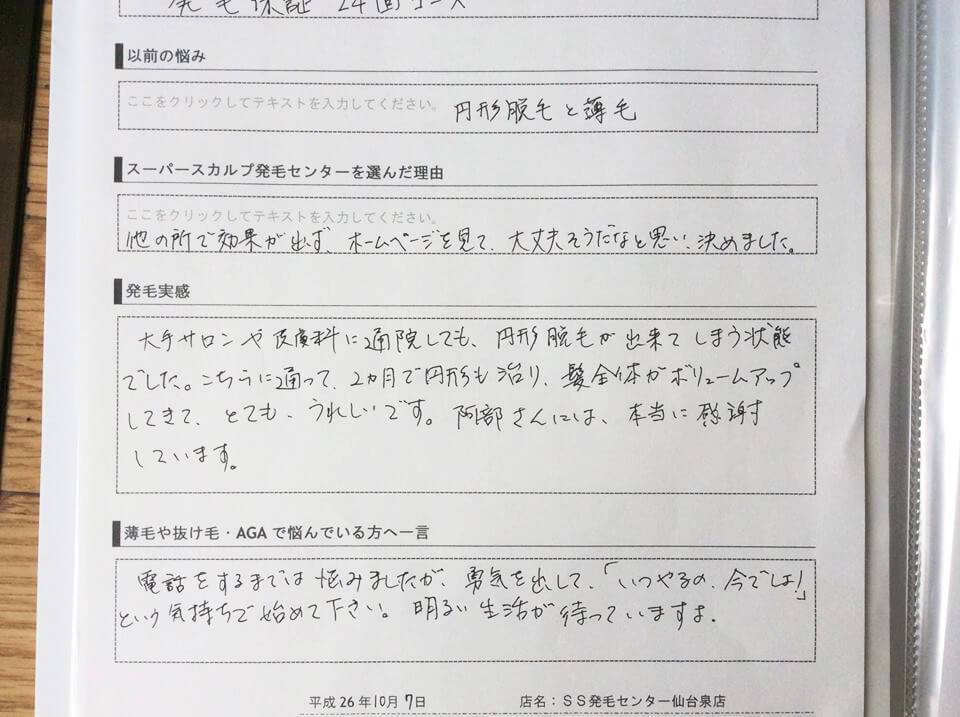 発毛保証 24回コース
以前の悩み
ここをクリックしてテキストを入力してください。 円形脱毛と薄毛
スーパースカルプ発毛センターを選んだ理由
ここをクリックしてテキストを入力してください。
他の所で効果が出ず、ホームページを見て、大丈夫そうだなと思い、決めました。
発毛実感
大手サロンや皮膚科に通院しても、円形脱毛が出来てしまう状態
でした。こちらに通って、2カ月で円形も治り、髪全体がボリュームアップ
してきて、とても、うれしいです。阿部さんには、本当に感謝
しています。
薄毛や抜け毛・AGAで悩んでいる方へ一言
電話をするまでは悩みましたが、勇気を出して、「いつやるの、今でしょ!」
という気持ちで始めて下さい。明るい生活が待っていますよ.
平成26年10月7日 店名：ＳＳ発毛センター仙台泉店